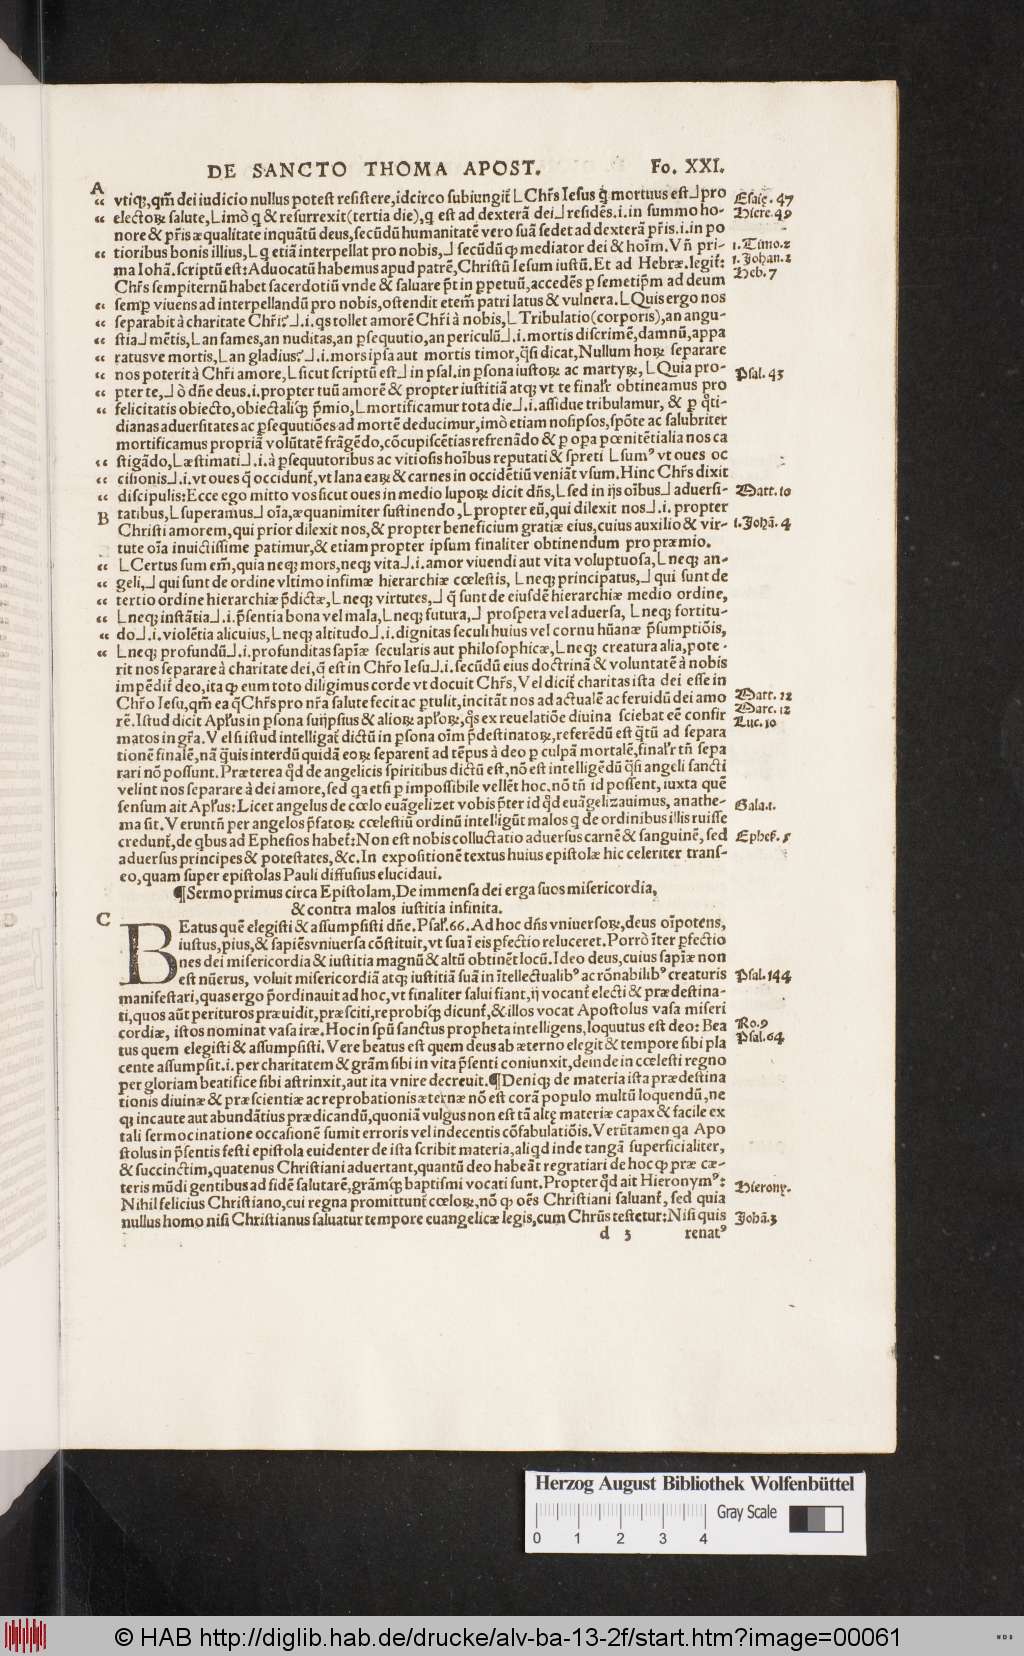 DE SANCTO THOMA APOST. Fo. XXI.
A
vtiqꝫ, qm̃ dei iudicio nullus potest resistere, idcirco subiungit̃ L Chr̃s Iesus q̃ mortuus est ⅃ pro
electoꝝ salute, L imò q & resurrexit (tertia die), q est ad dexterã dei ⅃ residẽs .i. in summo ho-
nore & pr̃is æqualitate inquãtũ deus, secũdũ humanitatẽ vero suã sedet ad dexterã pr̃is .i. in po
tioribus bonis illius, L q etiã interpellat pro nobis, ⅃ secũdũ ꝙ mediator dei & hoĩm. Vñ pri-
ma Iohã. scriptũ est: Aduocatũ habemus apud patrẽ, Christũ Iesum iustũ. Et ad Hebræ. legit̃:
Chr̃s sempiternũ habet sacerdotiũ vnde & saluare p̃t in ꝑpetuũ, accedẽs ꝑ semetip̃m ad deum
semꝑ viuens ad interpellandũ pro nobis, ostendit etem̃ patri latus & vulnera. L Quis ergo nos
separabit à charitate Chr̃i? ⅃ .i. qs tollet amorẽ Chr̃i à nobis, L Tribulatio (corporis), an angu-
stia ⅃ mẽtis, L an fames, an nuditas, an ꝑsequutio, an periculũ ⅃ .i. mortis discrimẽ, damnũ, appa
ratusve mortis, L an gladius? ⅃ .i. mors ipsa aut mortis timor, q̃si dicat, Nullum hoꝝ separare
nos poterit à Chr̃i amore, L sicut scriptũ est ⅃ in psal. in ꝑsona iustoꝝ ac martyꝝ, L Quia pro-
pter te, ⅃ ò dñe deus .i. propter tuũ amorẽ & propter iustitiã atqꝫ vt te final'r obtineamus pro
felicitatis obiecto, obiectaliqꝫ p̃mio, L mortificamur tota die ⅃ .i. assidue tribulamur, & ꝑ q̃ti-
dianas aduersitates ac ꝑsequutiões ad mortẽ deducimur, imò etiam nosipsos, spõte ac salubriter
mortificamus propriã volũtatẽ frãgẽdo, cõcupiscẽtias refrenãdo & ꝑ opa pœnitẽtialia nos ca
stigãdo, L æstimati ⅃ .i. à ꝑsequutoribus ac vitiosis hoĩbus reputati & spreti L sumꝰ vt oues oc
cisionis ⅃ .i. vt oues q̃ occidunt̃, vt lana eaꝝ & carnes in occidẽtiũ veniãt vsum. Hinc Chr̃s dixit
discipulis: Ecce ego mitto vos sicut oues in medio lupoꝝ dicit dñs, L sed in ijs oĩbus ⅃ aduersi-
B
tatibus, L superamus ⅃ oĩa, æquanimiter sustinendo, L propter eũ, qui dilexit nos ⅃ .i. propter
Christi amorem, qui prior dilexit nos, & propter beneficium gratiæ eius, cuius auxilio & vir-
tute oĩa inuictissime patimur, & etiam propter ipsum finaliter obtinendum pro præmio.
L Certus sum em̃, quia neqꝫ mors, neqꝫ vita ⅃ .i. amor viuendi aut vita voluptuosa, L neqꝫ an-
geli, ⅃ qui sunt de ordine vltimo infimæ hierarchiæ cœlestis, L neqꝫ principatus, ⅃ qui sunt de
tertio ordine hierarchiæ p̃dictæ, L neqꝫ virtutes, ⅃ q̃ sunt de eiusdẽ hierarchiæ medio ordine,
L neqꝫ instãtia ⅃ .i. p̃sentia bona vel mala, L neqꝫ futura, ⅃ prospera vel aduersa, L neqꝫ fortitu-
do ⅃ .i. violẽtia alicuius, L neqꝫ altitudo ⅃ .i. dignitas seculi huius vel cornu hũanæ p̃sumptiõis,
L neqꝫ profundũ ⅃ .i. profunditas sapĩæ secularis aut philosophicæ, L neqꝫ creatura alia, pote-
rit nos separare à charitate dei, q̃ est in Chr̃o Iesu ⅃ .i. secũdũ eius doctrinã & voluntatẽ à nobis
impẽdit̃ deo, ita ꝙ eum toto diligimus corde vt docuit Chr̃s, Vel dicit̃ charitas ista dei esse in
Chr̃o Iesu, qm̃ ea q̃ Chr̃s pro nr̃a salute fecit ac ꝑtulit, incitãt nos ad actualẽ ac feruidũ dei amo
rẽ. Istud dicit Apl'us in ꝑsona suijpsius & alioꝝ apl'oꝝ, q̃s ex reuelatiõe diuina sciebat eẽ confir
matos in gr̃a. Vel si istud intelligat̃ dictũ in ꝑsona oĩm p̃destinatoꝝ, referẽdũ est q̃tũ ad separa
tionẽ finalẽ, nã q̃uis interdũ quidã eoꝝ separent̃ ad tẽpus à deo ꝑ culpã mortalẽ, final'r tñ sepa
rari nõ possunt. Præterea qd̃ de angelicis spiritibus dictũ est, nõ est intelligẽdũ q̃si angeli sancti
velint nos separare à dei amore, sed qa etsi ꝑ impossibile vellẽt hoc, nõ tñ id possent, iuxta quẽ
sensum ait Apl'us: Licet angelus de cœlo euãgelizet vobis p̃ter id qd̃ euãgelizauimus, anathe-
ma sit. Veruntñ per angelos p̃fatoꝝ cœlestiũ ordinũ intelligũt malos q de ordinibus illis ruisse
credunt̃, de qbus ad Ephesios habet̃: Non est nobis colluctatio aduersus carnẽ & sanguinẽ, sed
aduersus principes & potestates, &c. In expositionẽ textus huius epistolæ hic celeriter trans-
eo, quam super epistolas Pauli diffusius elucidaui.
¶ Sermo primus circa Epistolam, De immensa dei erga suos misericordia,
& contra malos iustitia infinita.
C
BEatus quẽ elegisti & assumpsisti dñe. Psal'. 66. Ad hoc dñs vniuersoꝝ, deus oĩpotens,
iustus, pius, & sapiẽs vniuersa cõstituit, vt sua ĩ eis ꝑfectio reluceret. Porrò ĩter ꝑfectio
nes dei misericordia & iustitia magnũ & altũ obtinẽt locũ. Ideo deus, cuius sapĩæ non
est nũerus, voluit misericordiã atqꝫ iustitiã suã in ĩtellectualibꝰ ac rõnabilibꝰ creaturis
manifestari, quas ergo p̃ordinauit ad hoc, vt finaliter salui fiant, ij vocant̃ electi & prædestina-
ti, quos aũt perituros præuidit, præsciti, reprobiqꝫ dicunt̃, & illos vocat Apostolus vasa miseri
cordiæ, istos nominat vasa iræ. Hoc in spũ sanctus propheta intelligens, loquutus est deo: Bea
tus quem elegisti & assumpsisti. Vere beatus est quem deus ab æterno elegit & tempore sibi pla
cente assumpsit .i. per charitatem & grãm sibi in vita p̃senti coniunxit, deinde in cœlesti regno
per gloriam beatifice sibi astrinxit, aut ita vnire decreuit. ¶ Deniqꝫ de materia ista prædestina
tionis diuinæ & præscientiæ ac reprobationis æternæ nõ est corã populo multũ loquendũ, ne
qꝫ incaute aut abundãtius prædicandũ, quoniã vulgus non est tã altę materiæ capax & facile ex
tali sermocinatione occasionẽ sumit erroris vel indecentis cõfabulatiõis. Verũtamen qa Apo
stolus in p̃sentis festi epistola euidenter de ista scribit materia, aliqd inde tangã superficialiter,
& succinctim, quatenus Christiani aduertant, quantũ deo habeãt regratiari de hoc ꝙ præ cæ-
teris mũdi gentibus ad fidẽ salutarẽ, grãmqꝫ baptismi vocati sunt. Propter qd̃ ait Hieronymꝰ:
Nihil felicius Christiano, cui regna promittunt̃ cœloꝝ, nõ ꝙ oẽs Christiani saluant̃, sed quia
nullus homo nisi Christianus saluatur tempore euangelicæ legis, cum Chrũs testetur: Nisi quis
d 3 renatꝰ
Esaię. 47
Hiere. 49
1. Timo. 2
1. Johan. 2
Heb. 7
Psal. 43
Matt. 10
1. Johã. 4
Matt. 22
Marc. 12
Luc. 10
Gala. 1.
Ephes. 5
Psal. 144
Ro. 9
Psal. 64
Hierony.
Johã. 3
Herzog August Bibliothek Wolfenbüttel
Gray Scale
0 1 2 3 4
© HAB http://diglib.hab.de/drucke/alv-ba-13-2f/start.htm?image=00061